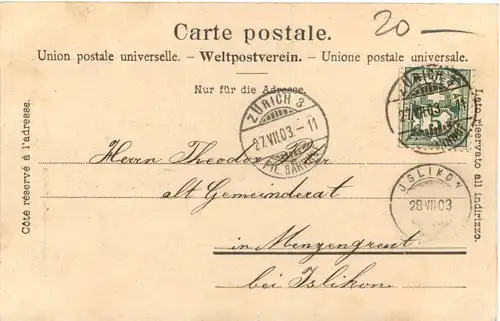 20 —
Carte postale.
Union postale universelle. - Weltpostverein. - Unione postale universale.
Nur für die Adresse.
Côté réservé à l'adresse.
Lato riservato all indirizzo.
ZÜRICH 3
27.VII.03.-11
FIL. BAHNHOF
ZÜRICH 3
27.VII.03.-11
JSLIKON
28.VII.03
Herrn Theodor
alt Gemeinderat
in Menzengreut
bei Islikon.